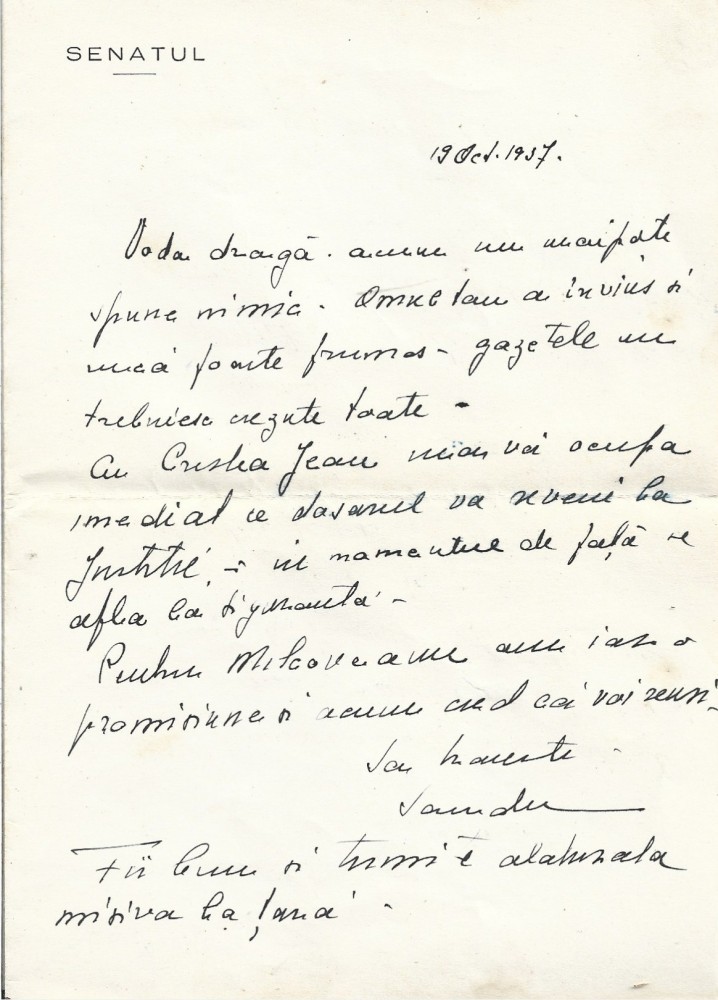 SENATUL
19 Oct. 1937.
Voda dragă. acum nu mai pote
spune nimic. Omul tau a inviat si
inca foarte frumos - gazetele nu
trebuiesc crezute toate -
Cu Cristea Jean ma voi ocupa
imediat ce dosarul va reveni la
Justitie, - in momentul de față se
afla la Siguranta -
Pentru Milcoveanu am iar o
promisiune si acum cred că voi reusi -
Sa traesti -
Sandu
Fii bun si trimite alaturata
misiva la țară -